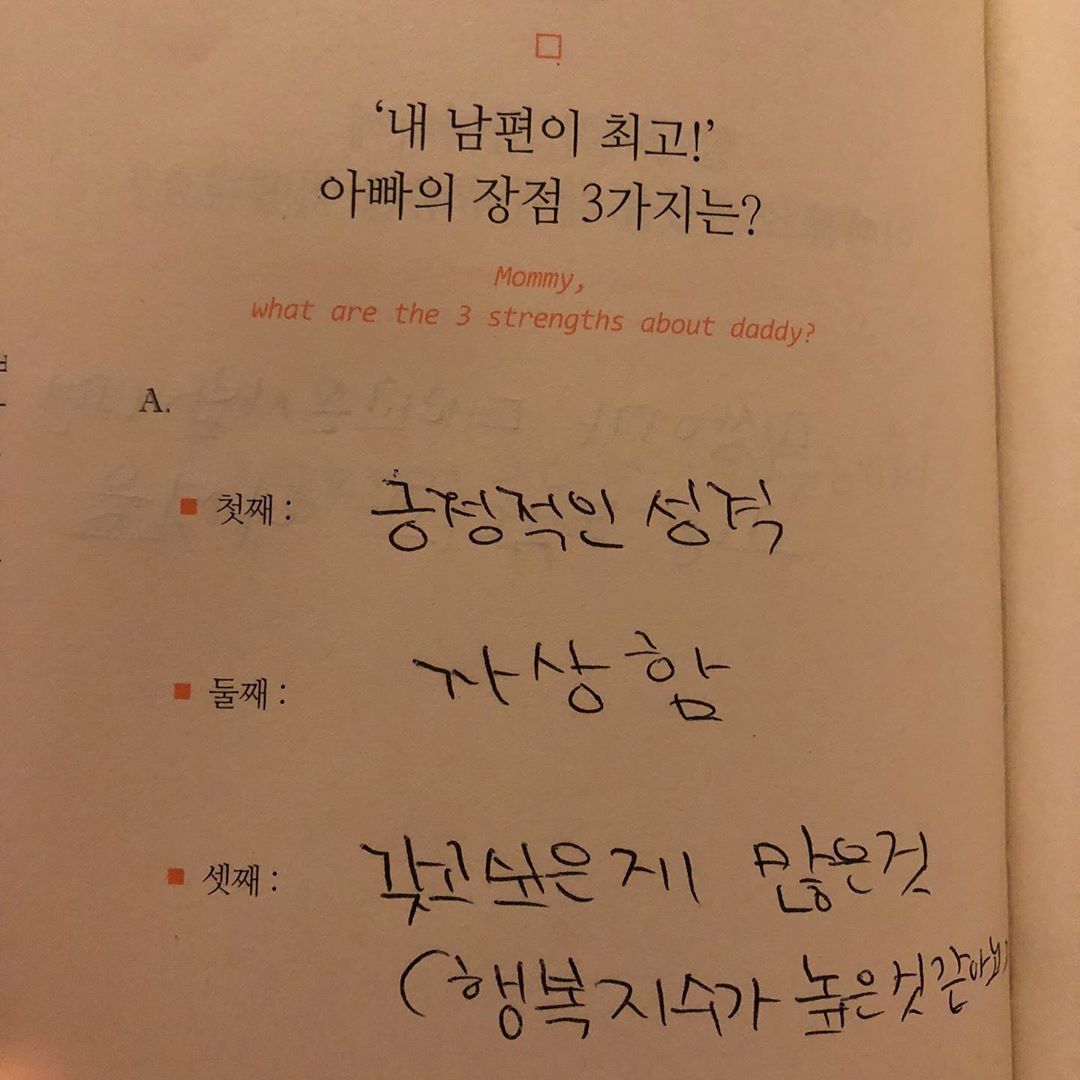 '내 남편이 최고!'
아빠의 장점 3가지는?
Mommy,
what are the 3 strengths about daddy?
A.
■ 첫째 : 긍정적인 성격
■ 둘째 : 자상함
■ 셋째 : 갖고싶은게 많은것
(행복지수가 높은것같아